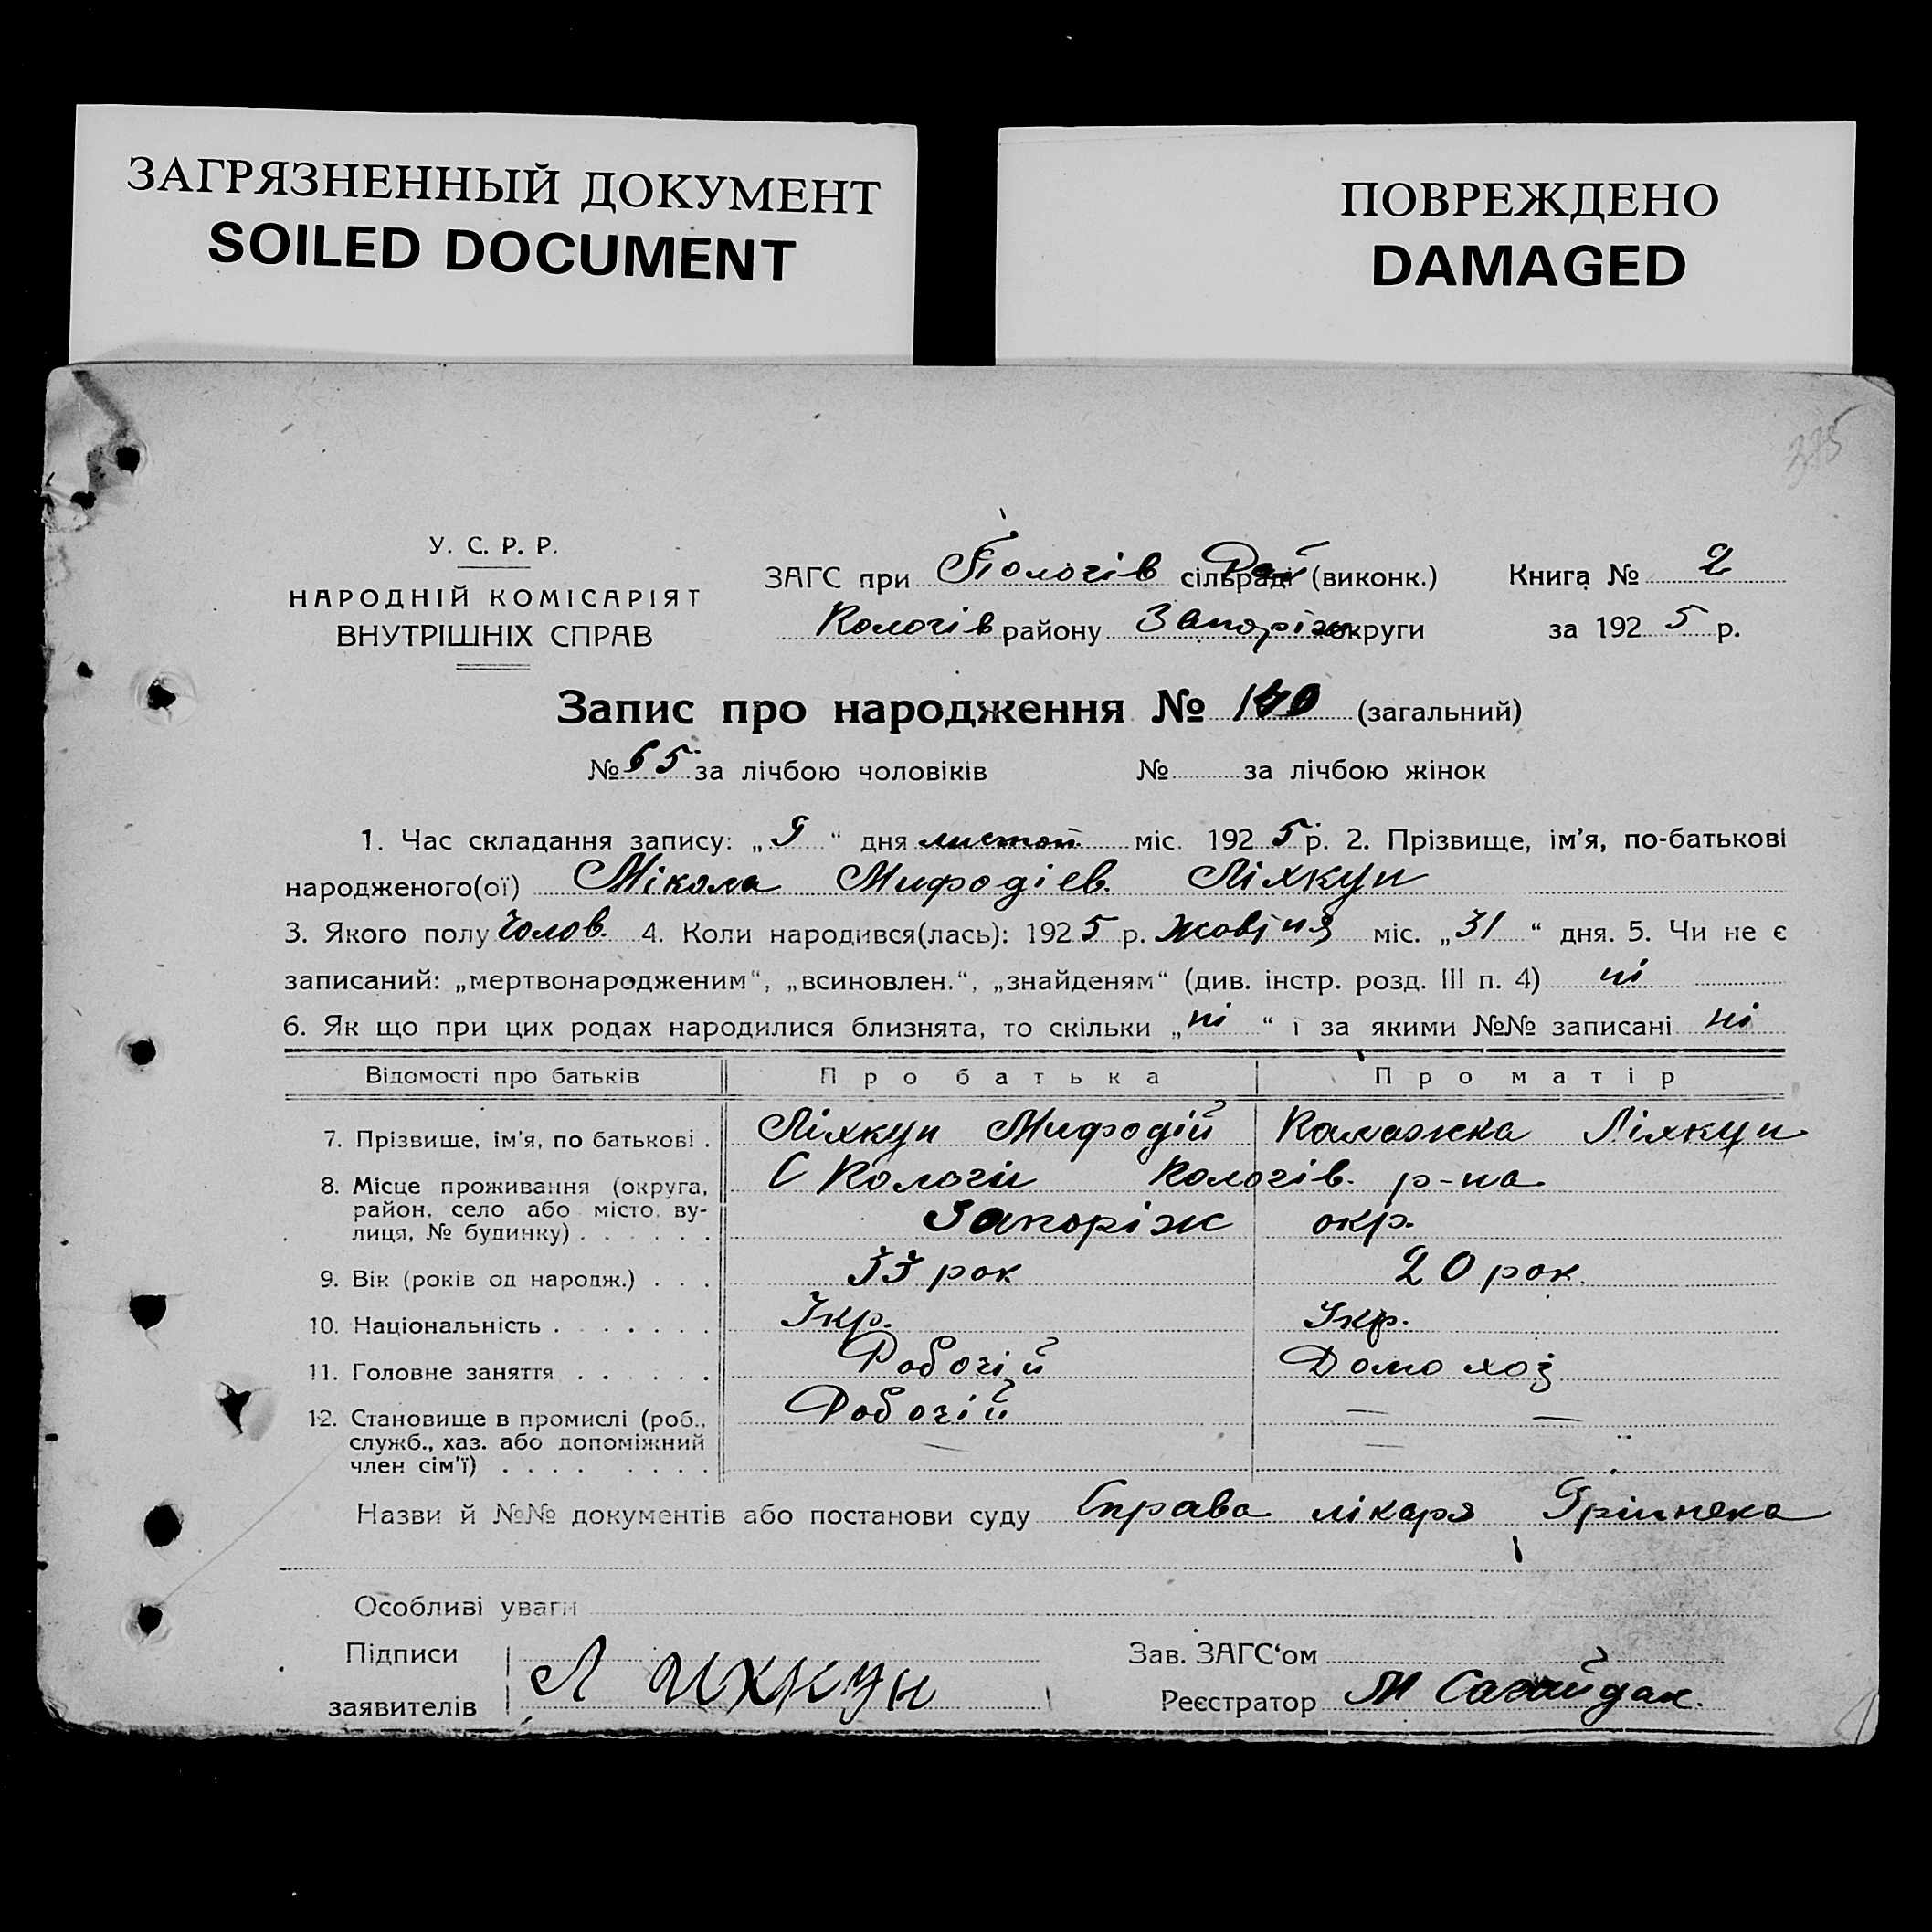 ЗАГРЯЗНЕННЫЙ ДОКУМЕНТ
SOILED DOCUMENT
ПОВРЕЖДЕНО
DAMAGED
335
У. С. Р. Р.
НАРОДНІЙ КОМІСАРІЯТ
ВНУТРІШНІХ СПРАВ
ЗАГС при Пологів сільраді (виконк.)
Пологів району Запоріж округи
Книга № 2
за 1925 р.
Запис про народження № 140 (загальний)
№ 65 за лічбою чоловіків № за лічбою жінок
1. Час складання запису: „9“ дня листоп. міс. 1925 р. 2. Прізвище, ім'я, по-батькові
народженого(ої) Мікола Мифодіев. Ліхкун
3. Якого полу Чолов. 4. Коли народився(лась): 1925 р. Жовтня міс. „31“ дня. 5. Чи не є
записаний: „мертвонародженим“, „всиновлен.“, „знайденям“ (див. інстр. розд. III п. 4) ні
6. Як що при цих родах народилися близнята, то скільки „ні“ і за якими №№ записані ні
Відомості про батьків Про батька Про матір
7. Прізвище, ім'я, по батькові . Ліхкун Мифодій Ліхкун
8. Місце проживання (округа, район, село або місто, вулиця, № будинку) . . . . . . С Пологи Пологів. р-на
Запоріж окр.
9. Вік (років од народж.) . . . 33 рок 20 рок.
10. Національність . . . . . . . Укр. Укр.
11. Головне заняття . . . . . . Робочій Домо хоз
12. Становище в промислі (роб., служб., хаз. або допоміжний член сім'ї) . . . . . . . . Робочій — —
Назви й №№ документів або постанови суду Справа лікаря
Особливі уваги
Підписи
заявителів Лихкун
Зав. ЗАГС'ом
Реєстратор М Сагайдак.